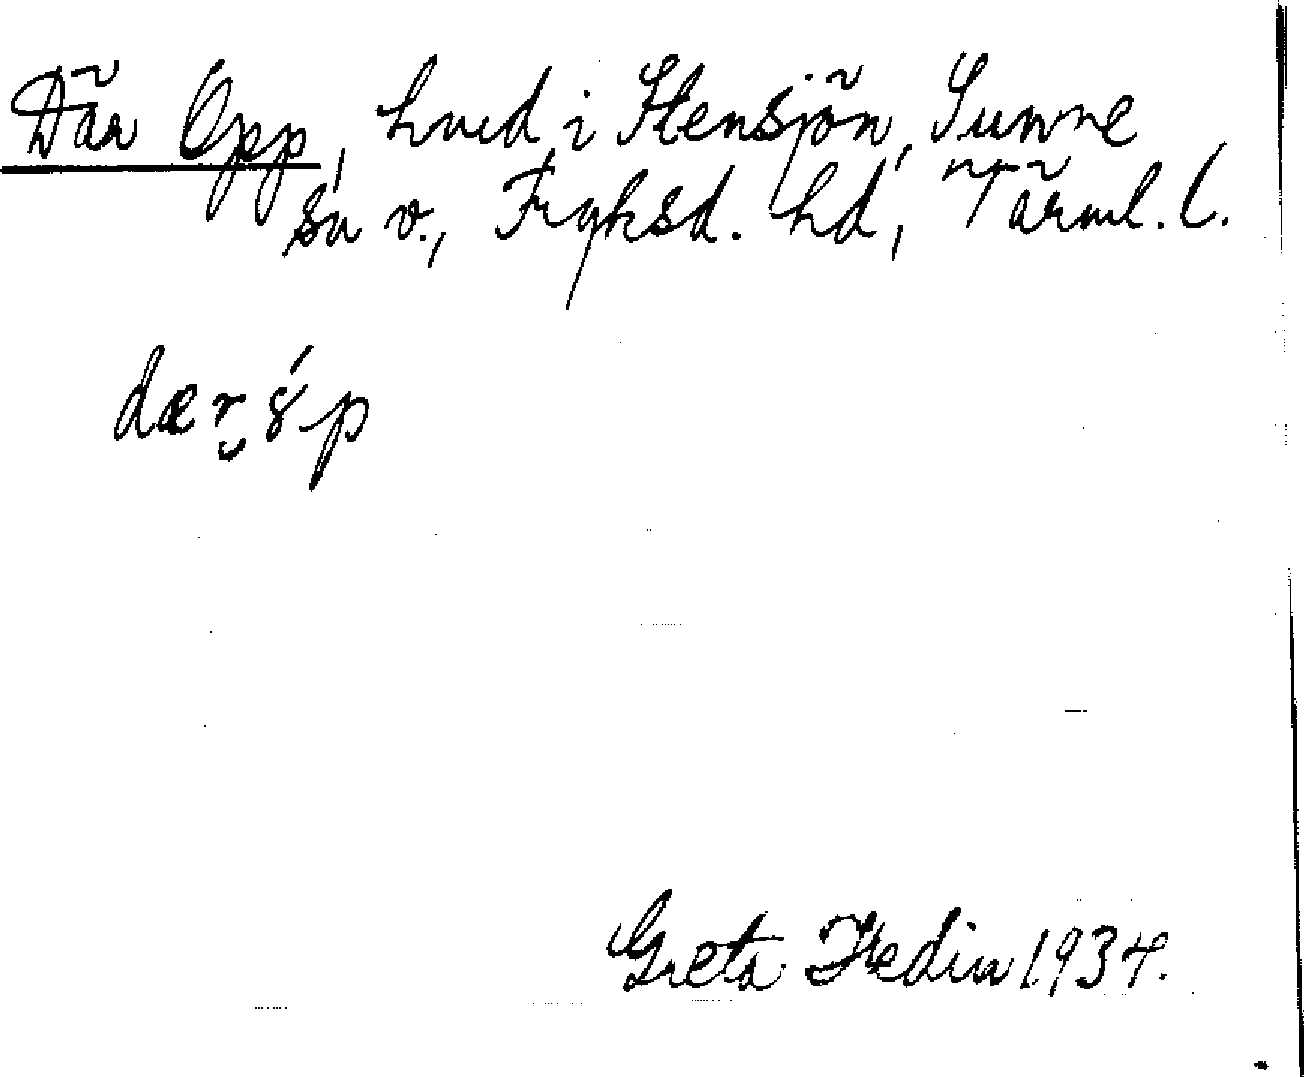 Där Opp, hmd i Stensjön, Sunne
sn v., Fryksd. hd, Värml. l.
dær óp
Greta Hedin 1934.